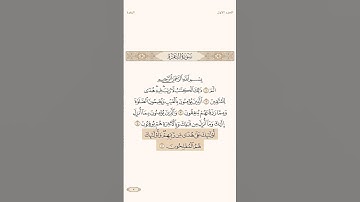 الجزء الأول
البقرة
سورة البقرة
بِسْمِ اللَّهِ الرَّحْمَٰنِ الرَّحِيمِ
الٓمٓ ۝ ذَٰلِكَ ٱلْكِتَٰبُ لَا رَيْبَ فِيهِ هُدًى
لِّلْمُتَّقِينَ ۝ ٱلَّذِينَ يُؤْمِنُونَ بِٱلْغَيْبِ وَيُقِيمُونَ ٱلصَّلَوٰةَ
وَمِمَّا رَزَقْنَٰهُمْ يُنفِقُونَ ۝ وَٱلَّذِينَ يُؤْمِنُونَ بِمَآ أُنزِلَ
إِلَيْكَ وَمَآ أُنزِلَ مِن قَبْلِكَ وَبِٱلْأَخِرَةِ هُمْ يُوقِنُونَ ۝
أُو۟لَٰٓئِكَ عَلَىٰ هُدًى مِّن رَّبِّهِمْ وَأُو۟لَٰٓئِكَ
هُمُ ٱلْمُفْلِحُونَ ۝